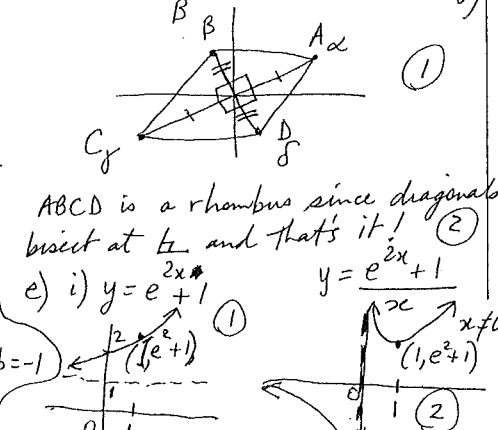 B
B A α
①
C γ D δ
ABCD is a rhombus since diagonals
bisect at ∟ and that's it! ②
e) i) y = e^{2x} + 1 ①
y = \frac{e^{2x} + 1}{x} x ≠ 0
2 (1, e^2 + 1)
(1, e^2 + 1)
b = -1
1
0 1 ②
0 1